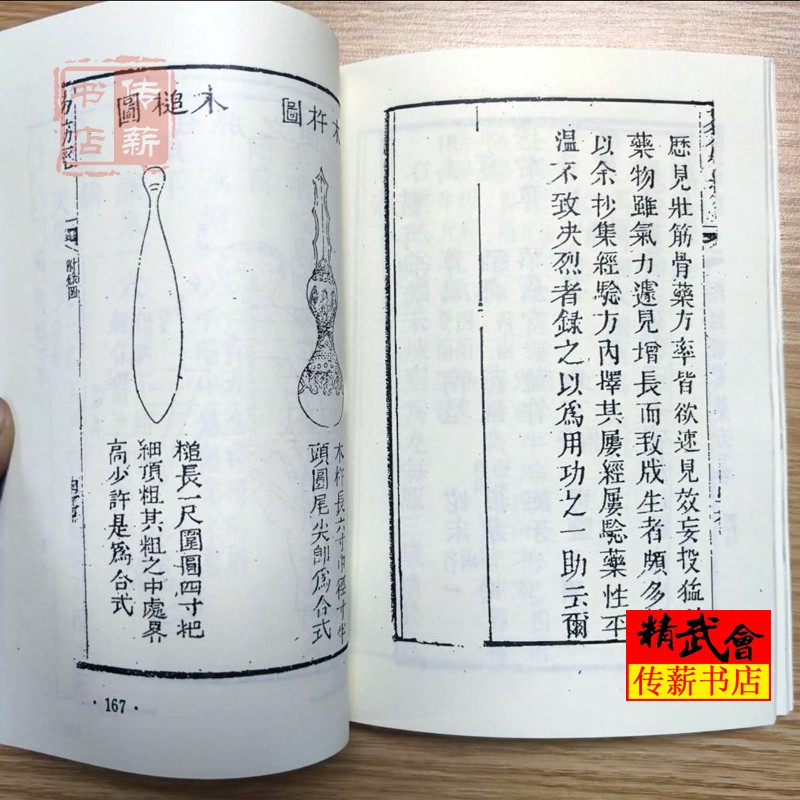 歷見壯筋骨藥方率皆欲速見效妄投猛
藥物雖氣力遽見增長而致戕生者頗多
以余抄集經驗方內擇其屢經屢驗藥性平
溫不致夬烈者錄之以爲用功之一助云爾
木杵圖
木杵長六寸中徑寸半
頭圓尾尖卽爲合式
木槌圖
槌長一尺圍圓四寸把
細頂粗其粗之中處畧
高少許是爲合式
·167·
传薪
书店
精武會
传薪书店